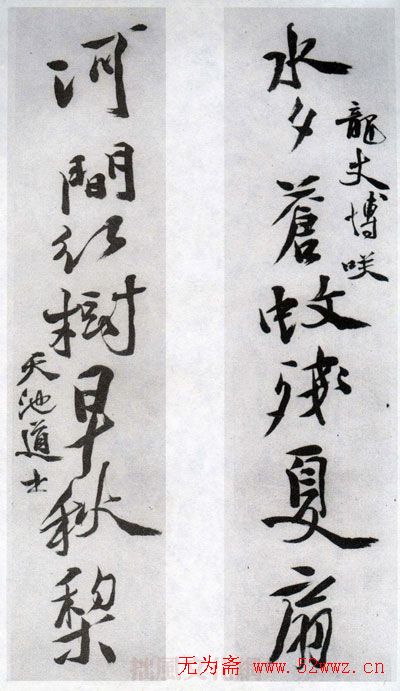 水夕蒼蚊殘夏扇
龍丈博咲
河間紅樹早秋梨
天池道士
无为斋 www.52wwz.cn